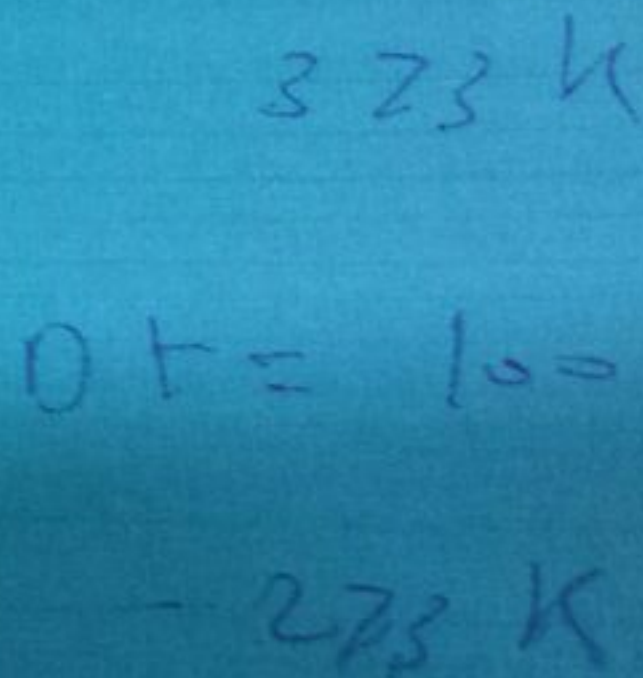 373 K
Dt = 100
- 273 K